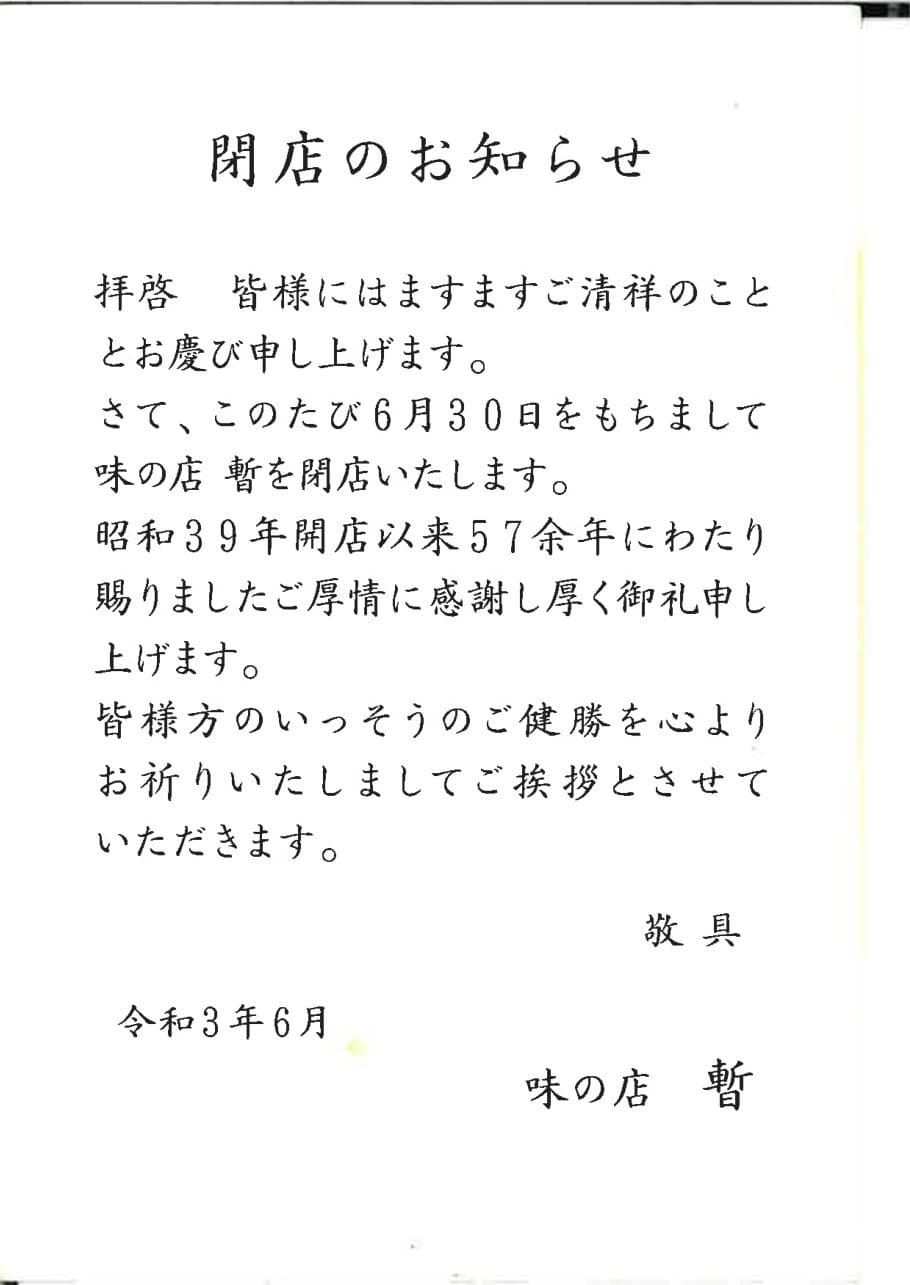 閉店のお知らせ
拝啓　皆様にはますますご清祥のこと
とお慶び申し上げます。
さて、このたび６月３０日をもちまして
味の店 暫を閉店いたします。
昭和３９年開店以来５７余年にわたり
賜りましたご厚情に感謝し厚く御礼申し
上げます。
皆様方のいっそうのご健勝を心より
お祈りいたしましてご挨拶とさせて
いただきます。
敬 具
令和３年６月
味の店　暫